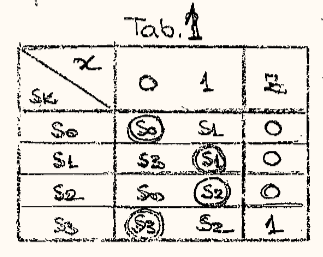 Tab. 1
x
SK 0 1 Z
S0 S0 S1 0
S1 S3 S1 0
S2 S0 S2 0
S3 S3 S2 1